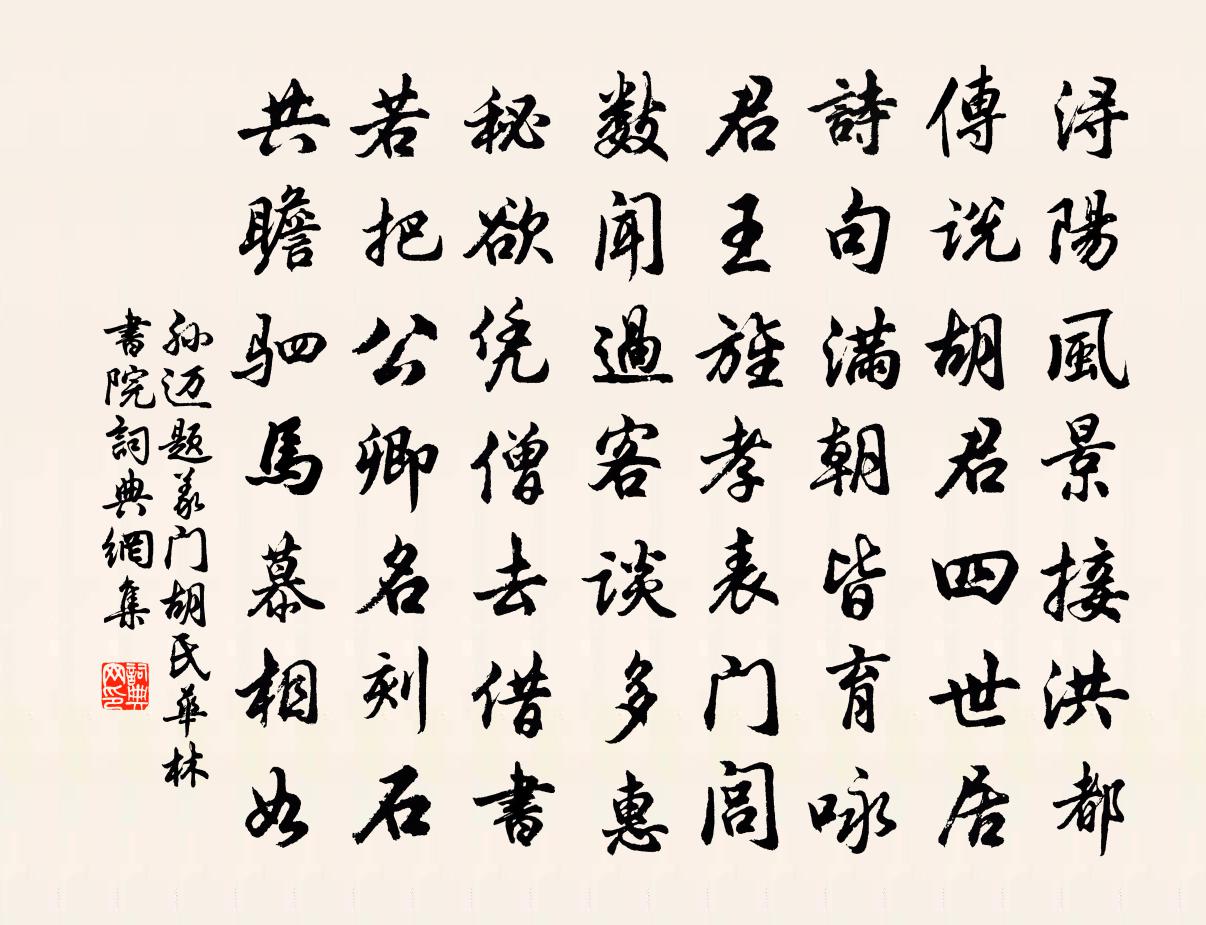 浔陽風景接洪都
傳说胡君四世居
詩句满朝皆育咏
君王旌孝表门閭
数闻過客谈多惠
秘欲凭僧去借書
若把公卿名刻石
共瞻驷馬慕相如
孙迈题义门胡氏華林
書院詞典網集
詞典网印